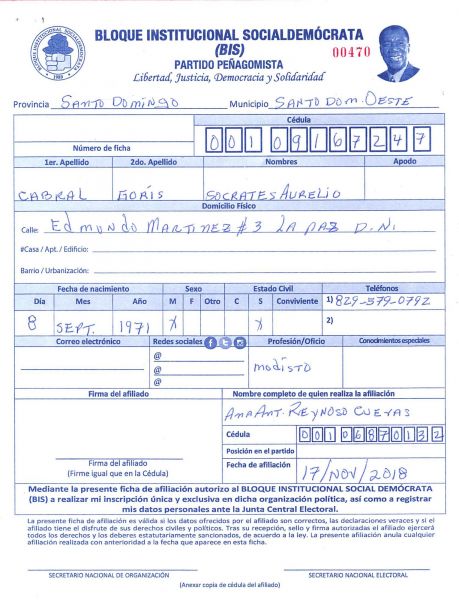 BLOQUE INSTITUCIONAL SOCIALDEMÓCRATA
(BIS)
00470
PARTIDO PEÑAGOMISTA
Libertad, Justicia, Democracia y Solidaridad
BLOQUE INSTITUCIONAL SOCIALDEMOCRATA
Provincia SANTO DOMINGO Municipio SANTO DOM. OESTE
Cédula
Número de ficha 00109167247
1er. Apellido 2do. Apellido Nombres Apodo
CABRAL GORIS SOCRATES AURELIO
Domicilio Físico
Calle: EDMUNDO MARTINEZ #3 LA PAZ D.N.
#Casa / Apt. / Edificio:
Barrio / Urbanización:
Fecha de nacimiento Sexo Estado Civil Teléfonos
Día Mes Año M F Otro C S Conviviente 1) 829-579-0792
8 SEPT. 1971 X X 2)
Correo electrónico Redes sociales Profesión/Oficio Conocimientos especiales
@
@
@
modisto
Firma del afiliado Nombre completo de quien realiza la afiliación
ANA ANT. REYNOSO CUEVAS
Cédula 00106870132
Posición en el partido
Firma del afiliado
(Firme igual que en la Cédula)
Fecha de afiliación 17/NOV/2018
Mediante la presente ficha de afiliación autorizo al BLOQUE INSTITUCIONAL SOCIAL DEMÓCRATA
(BIS) a realizar mi inscripción única y exclusiva en dicha organización política, así como a registrar
mis datos personales ante la Junta Central Electoral.
La presente ficha de afiliación es válida si los datos ofrecidos por el afiliado son correctos, las declaraciones veraces y si el
afiliado tiene el disfrute de sus derechos civiles y políticos. Tras su recepción, sello y firma autorizadas el afiliado ejercerá
todos los derechos y los deberes estatutariamente sancionados, de acuerdo a la ley. La presente afiliación anula cualquier
afiliación realizada con anterioridad a la fecha que aparece en esta ficha.
SECRETARIO NACIONAL DE ORGANIZACIÓN SECRETARIO NACIONAL ELECTORAL
(Anexar copia de cédula del afiliado)